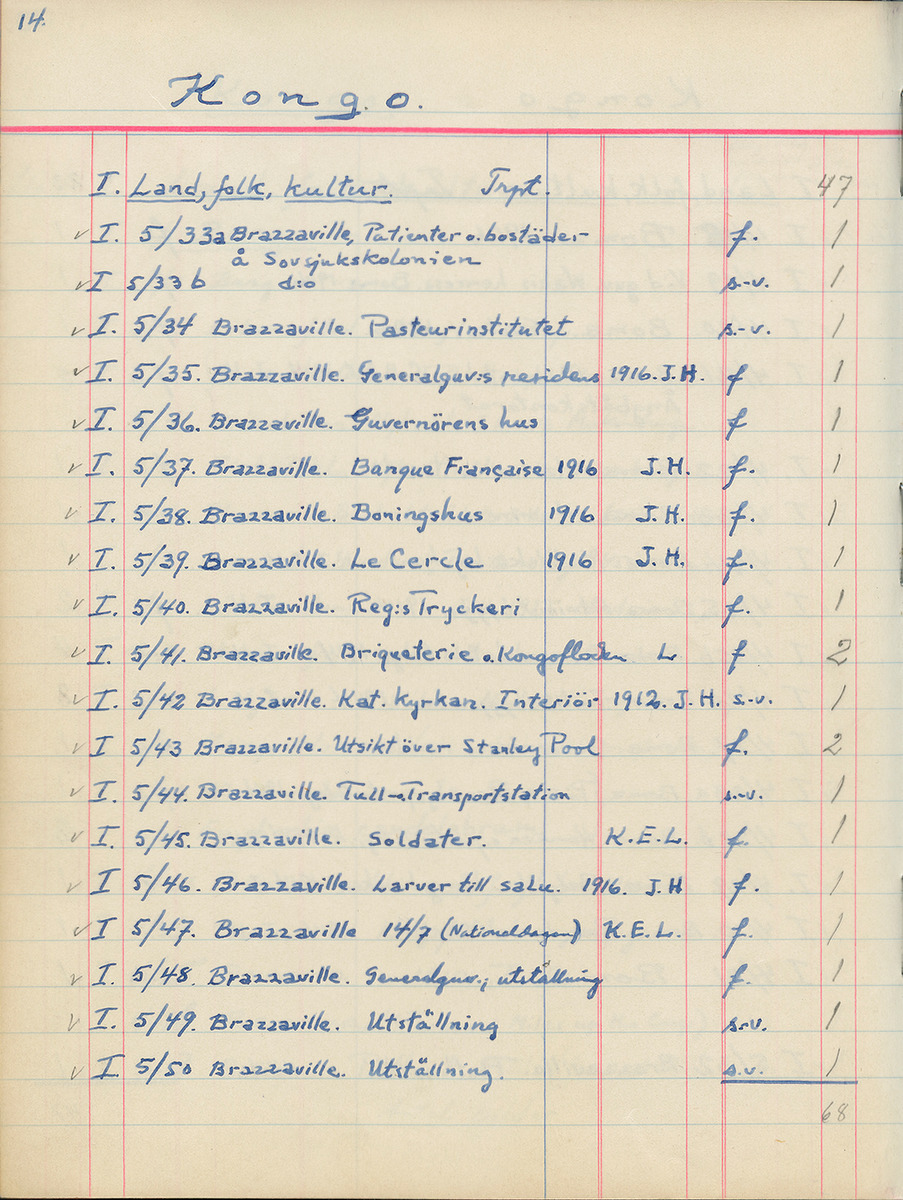 14.
Kongo.
I. Land, folk, kultur. Trpt 47
✓ I. 5/33a Brazzaville, Patienter o. bostäder f. 1
å Sovsjukskolonien
✓ I 5/33 b d:o s.-v. 1
✓ I. 5/34 Brazzaville. Pasteurinstitutet s.-v. 1
✓ I. 5/35. Brazzaville. Generalguv:s residens 1916. J.H. f 1
✓ I. 5/36. Brazzaville. Guvernörens hus f 1
✓ I. 5/37. Brazzaville. Banque Française 1916 J.H. f. 1
✓ I. 5/38. Brazzaville. Boningshus 1916 J.H. f. 1
✓ I. 5/39. Brazzaville. Le Cercle 1916 J.H. f. 1
✓ I. 5/40. Brazzaville. Reg:s Tryckeri f. 1
✓ I. 5/41. Brazzaville. Briqueterie o. Kongofloden L f 2
✓ I. 5/42 Brazzaville. Kat. kyrkan. Interiör 1912. J.H. s.-v. 1
✓ I 5/43 Brazzaville. Utsikt över Stanley Pool f. 2
✓ I. 5/44. Brazzaville. Tull-o. Transportstation s.-v. 1
✓ I. 5/45. Brazzaville. Soldater. K.E.L. f. 1
✓ I 5/46. Brazzaville. Larver till salu. 1916. J.H f. 1
✓ I 5/47. Brazzaville 14/7 (Nationaldagen) K.E.L. f. 1
✓ I. 5/48. Brazzaville. Generalguv.; utställning f. 1
✓ I. 5/49. Brazzaville. Utställning s.-v. 1
✓ I 5/50 Brazzaville. Utställning. s.v. 1
68